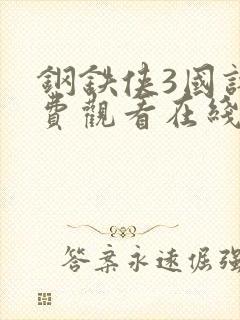 鋼鉄俠3國
費觀看在綫
答案永遠倔強